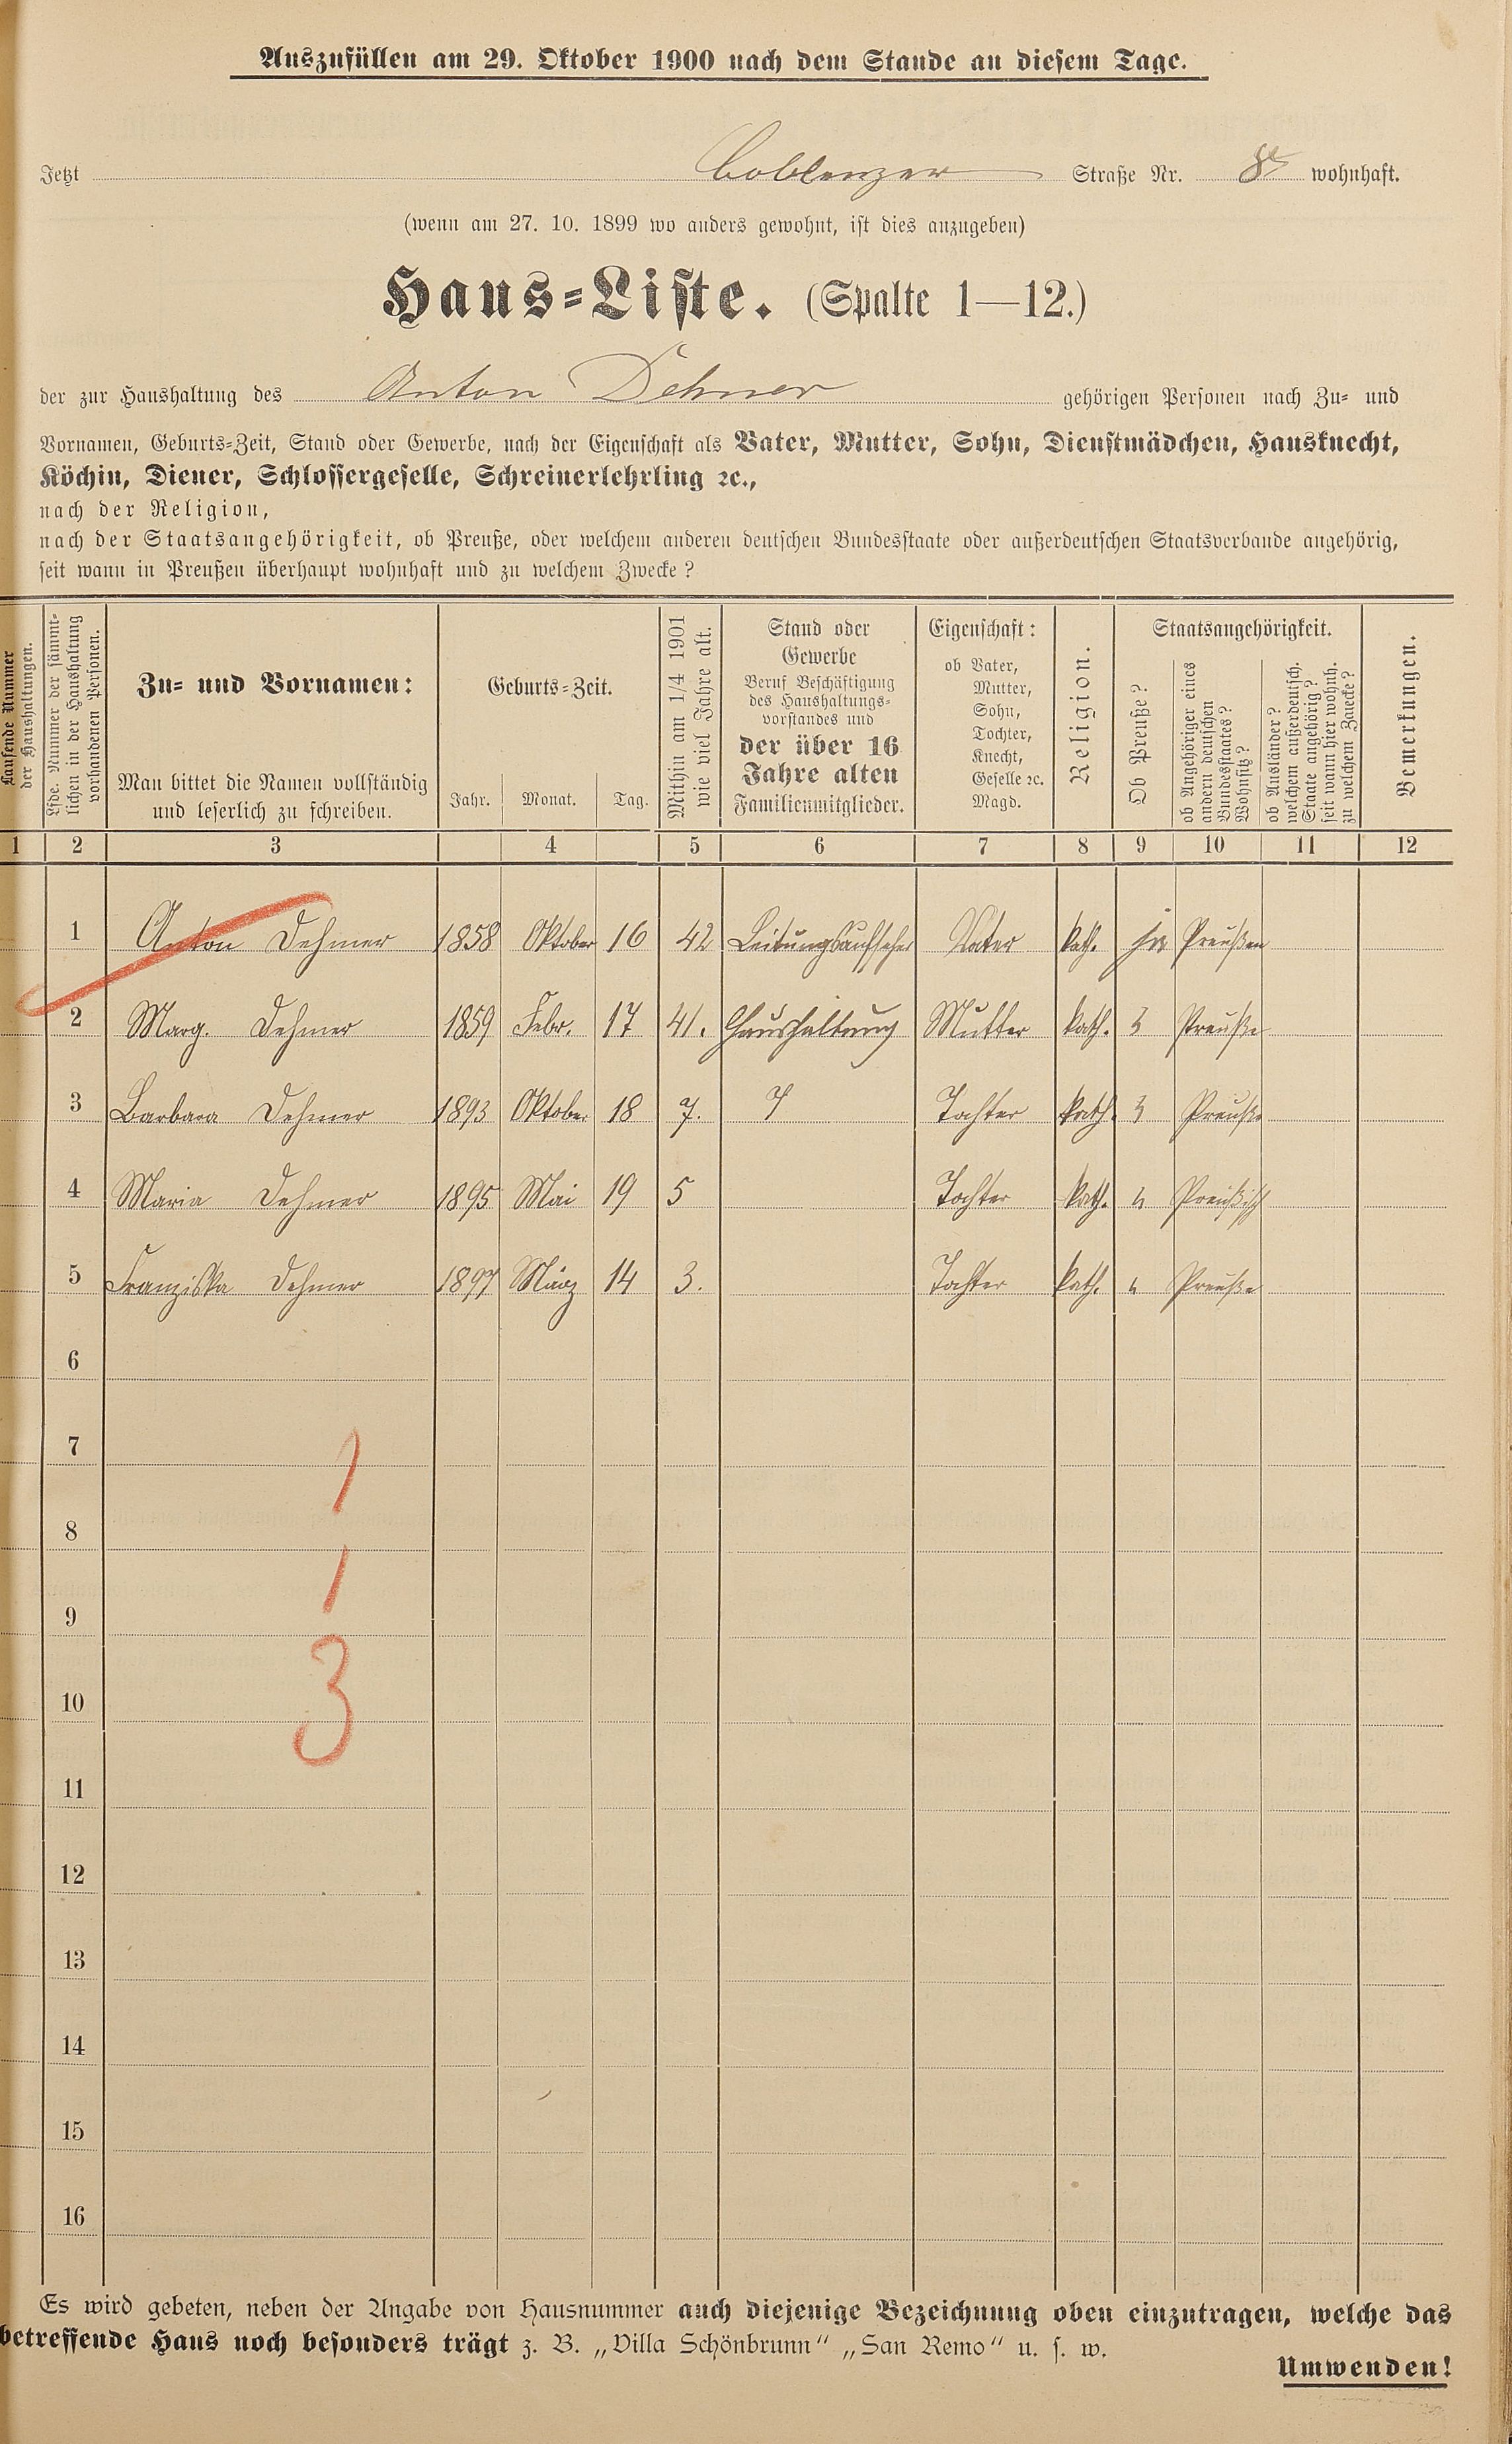 Auszufüllen am 29. Oktober 1900 nach dem Stande an diesem Tage.
Jetzt Coblenzer Straße Nr. wohnhaft.
(wenn am 27. 10. 1899 wo anders gewohnt, ist dies anzugeben)
Haus-Liste. (Spalte 1—12.)
der zur Haushaltung des Anton Dehmer gehörigen Personen nach Zu- und
Vornamen, Geburts-Zeit, Stand oder Gewerbe, nach der Eigenschaft als Vater, Mutter, Sohn, Dienstmädchen, Hausknecht,
Köchin, Diener, Schlossergeselle, Schreinerlehrling ꝛc.,
nach der Religion,
nach der Staatsangehörigkeit, ob Preuße, oder welchem anderen deutschen Bundesstaate oder außerdeutschen Staatsverbande angehörig,
seit wann in Preußen überhaupt wohnhaft und zu welchem Zwecke?
Laufende Nummer
der Haushaltungen.
Lfde. Nummer der sämmt-
lichen in der Haushaltung
vorhandenen Personen.
Zu- und Vornamen:
Man bittet die Namen vollständig
und leserlich zu schreiben.
Geburts-Zeit.
Jahr. Monat. Tag.
Mithin am 1/4 1901
wie viel Jahre alt.
Stand oder
Gewerbe
Beruf Beschäftigung
des Haushaltungs-
vorstandes und
der über 16
Jahre alten
Familienmitglieder.
Eigenschaft:
ob Vater,
Mutter,
Sohn,
Tochter,
Knecht,
Geselle ꝛc.
Magd.
Religion.
Staatsangehörigkeit.
Ob Preuße?
ob Angehöriger eines
andern deutschen
Bundesstaates?
Wohnsitz?
ob Ausländer?
welchem außerdeutsch.
Staate angehörig?
seit wann hier wohnh.
zu welchem Zwecke?
Bemerkungen.
1 2 3 4 5 6 7 8 9 10 11 12
1 Anton Dehmer 1858 Oktober 16 42 Leitungsaufseher Vater kath. ja Preußen
2 Marg. Dehmer 1859 Febr. 17 41. Haushaltung Mutter kath. Preuße
3 Barbara Dehmer 1893 Oktober 18 7. Tochter kath. Preuße
4 Maria Dehmer 1895 Mai 19 5 Tochter kath. " Preußisch
5 Franziska Dehmer 1897 März 14 3. Tochter kath. " Preuße
6
7
1
8
1
9
3
10
11
12
13
14
15
16
Es wird gebeten, neben der Angabe von Hausnummer auch diejenige Bezeichnung oben einzutragen, welche das
betreffende Haus noch besonders trägt z. B. „Villa Schönbrunn“ „San Remo“ u. s. w.
Umwenden!